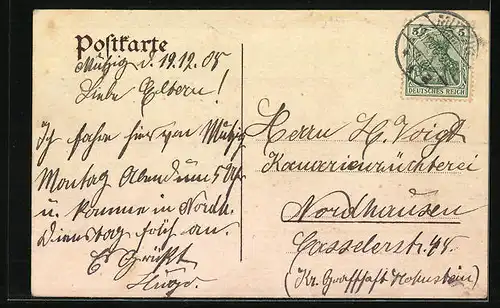 Postkarte
Mutzig d. 19.12.05
Liebe Eltern!
Ich fahre hier von Mutzig
Montag Abend um 5 Uhr
u. komme in Nordh.
Dienstag früh an.
Es Grüßt
Hugo.
5 5
DEUTSCHES REICH
Herrn H. Voigt
Kanarienzüchterei
Nordhausen
Casselerstr. 45.
(Kr. Grafschaft Hohnstein)